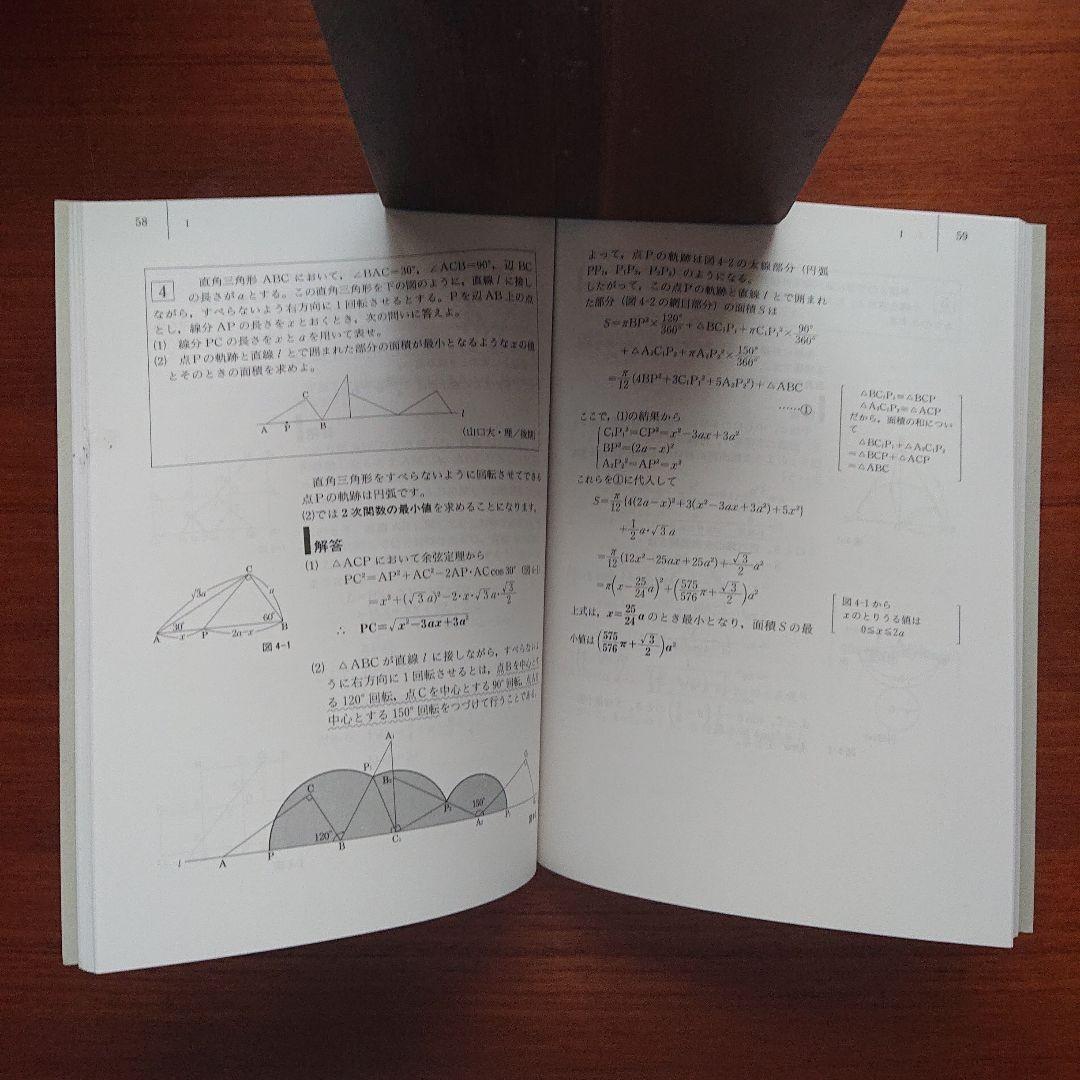 58
1
4
直角三角形 ABC において，∠BAC=30°，∠ACB=90°，辺 BC
の長さが a とする。この直角三角形を下の図のように，直線 l に接し
ながら，すべらないよう右方向に1回転させるとする。P を辺 AB 上の点
とし，線分 AP の長さを x とおくとき，次の問いに答えよ。
(1) 線分 PC の長さを x と a を用いて表せ。
(2) 点 P の軌跡と直線 l とで囲まれた部分の面積が最小となるような x の値
とそのときの面積を求めよ。
C
A P B l
(山口大・理／後期)
直角三角形をすべらないように回転させてできる
点 P の軌跡は円弧です。
(2)では2次関数の最小値を求めることになります。
解答
(1) △ACP において余弦定理から
PC²=AP²+AC²−2AP・AC cos 30° (図4-1)
=x²+(√3 a)²−2・x・√3 a・√3/2
∴ PC=√(x²−3ax+3a²)
C
√3a a
30° 60°
A x P 2a−x B
図 4-1
(2) △ABC が直線 l に接しながら，すべらないよ
うに右方向に1回転させるとは，点 B を中心とす
る 120° 回転，点 C を中心とする 90° 回転，点 A を
中心とする 150° 回転をつづけて行うことである。
A₁
P₁ B₂
C
P₂ 150°
120°
l A P B C₁ A₂ P₃
1
59
よって，点 P の軌跡は図 4-2 の太線部分 (円弧
PP₁，P₁P₂，P₂P₃) のようになる。
したがって，この点 P の軌跡と直線 l とで囲まれ
た部分 (図 4-2 の網目部分) の面積 S は
S=πBP²×120°/360°+△BC₁P₁+πC₁P₁²×90°/360°
+△A₂C₁P₂+πA₂P₂²×150°/360°
=π/12(4BP²+3C₁P₁²+5A₂P₂²)+△ABC
……①
△BC₁P₁≡△BCP
△A₂C₁P₂≡△ACP
だから，面積の和につい
て
△BC₁P₁+△A₂C₁P₂
=△BCP+△ACP
=△ABC
ここで，(1)の結果から
C₁P₁²=CP²=x²−3ax+3a²
BP²=(2a−x)²
A₂P₂²=AP²=x²
これらを①に代入して
S=π/12{4(2a−x)²+3(x²−3ax+3a²)+5x²}
+1/2 a・√3 a
=π/12(12x²−25ax+25a²)+√3/2 a²
=π(x−25/24 a)²+(575/576 π+√3/2)a²
上式は，x=25/24 a のとき最小となり，面積 S の最
小値は (575/576 π+√3/2)a²
図 4-1 から
x のとりうる値は
0≦x≦2a